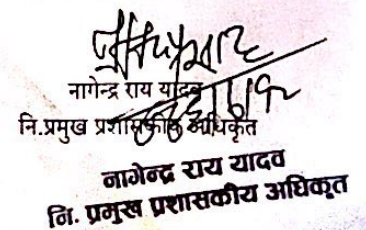 नागेन्द्र राय यादव
नि.प्रमुख प्रशासकीय अधिकृत
नागेन्द्र राय यादव
नि. प्रमुख प्रशासकीय अधिकृत